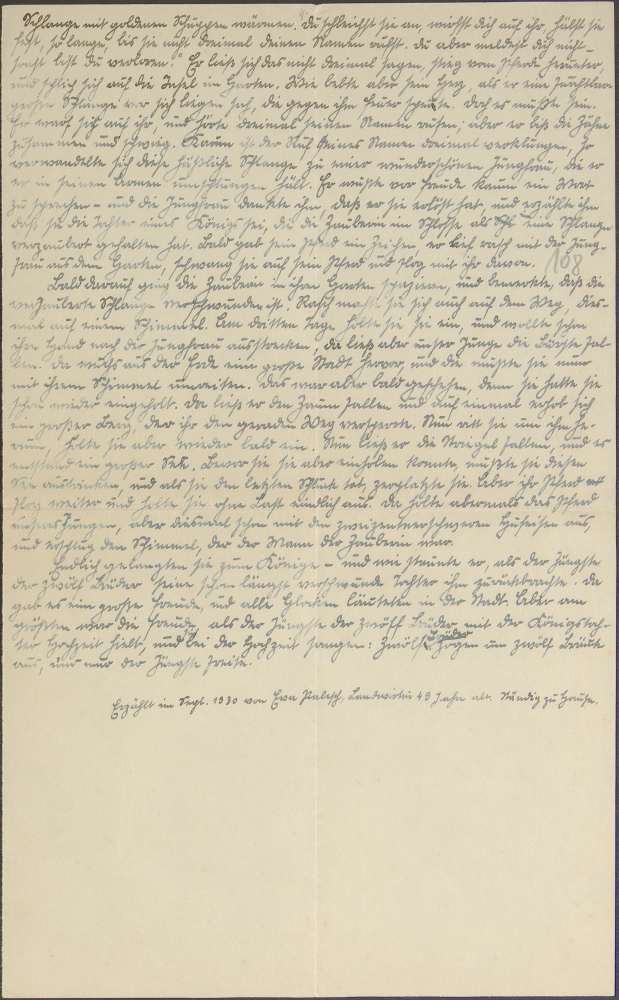 Schlange mit goldenen Schuppen wärmen. Du schleichst sie an, wirfst dich auf ihr, hälst sie
fest, so lange, bis sie nicht dreimal deinen Namen ruft. Du aber meldest dich nicht –
sonst bist du verloren." Er ließ sich das nicht dreimal sagen, stieg vom Pferde herunter,
und schlich sich auf die Insel im Garten. Wie bebte aber sein Herz, als er eine furchtbar
große Schlange vor sich liegen sah, die gegen ihn Feuer speite. Doch es mußte sein.
Er warf sich auf ihr, und hörte dreimal seinen Namen rufen; aber er biß die Zähne
zusammen und schwieg. Kaum ist der Ruf seines Namen dreimal verklungen, so
verwandelte sich diese häßliche Schlange zu einer wunderschönen Jungfrau, die er
er in seinen Armen umschlungen hält. Er wußte vor Freude kaum ein Wort
zu sprechen – und die Jungfrau dankte ihm, daß er sie erlöst hat, und erzählte ihm
daß sie die Tochter eines Königs sei, die die Zauberin im Schlosse als eine Schlange
verzaubert gehalten hat. Bald gab sein Pferd ein Zeichen, er lief rasch mit der Jung-
frau aus dem Garten, schwang sie auf sein Pferd und flog mit ihr davon. 108
Bald darauf ging die Zauberin in ihren Garten spazieren, und bemerkte, daß die
verzauberte Schlange verschwunden ist. Rasch macht sie sich auch auf dem Weg, dies-
mal auf einem Schimmel. Am dritten Tage holte sie sie ein, und wollte schon
ihre Hand nach der Jungfrau ausstrecken, da ließ aber unser Junge die Bürste fal-
len. Da wuchs aus der Erde eine große Stadt hervor, und die mußte sie nun
mit ihrem Schimmel umreiten. Das war aber bald geschehen, denn sie hatte sie
schon wieder eingeholt. Da ließ er den Zaum fallen und auf einmal erhob sich
ein großer Berg, der ihr den geraden Weg versperrte. Nun ritt sie um ihn he-
rum, holte sie aber wieder bald ein. Nun ließ er die Striegel fallen, und es
entstand ein großer See. Bevor sie sie aber einholen konnte, mußte sie diesen
See austrinken, und als sie den letzten Schluck tat, zerplatzte sie. Aber ihr Pferd
flog weiter und holte sie ohne Last endlich aus. Da holte abermals das Pferd
unseres Jungen, aber diesmal schon mit den zweizentnerschweren Hufeisen aus,
und erschlug den Schimmel, der der Mann der Zauberin war.
Endlich gelangten sie zum Könige – und wie staunte er, als der Jüngste
der zwölf Brüder seine schon längst verschwundene Tochter ihm zurückbrachte. Da
gab es eine große Freude, und alle Glocken läuteten in der Stadt. Aber am
größten war die Freude, als der Jüngste der zwölf Brüder mit der Königstoch-
ter Hochzeit hielt, und bei der Hochzeit sangen: Zwölf Brüder zogen um zwölf Bräute
aus, und nur der Jüngste freite.
Erzählt im Sept. 1930 von Ewa Palesch, Landwirtin 49 Jahre alt. Ständig zu Hause.